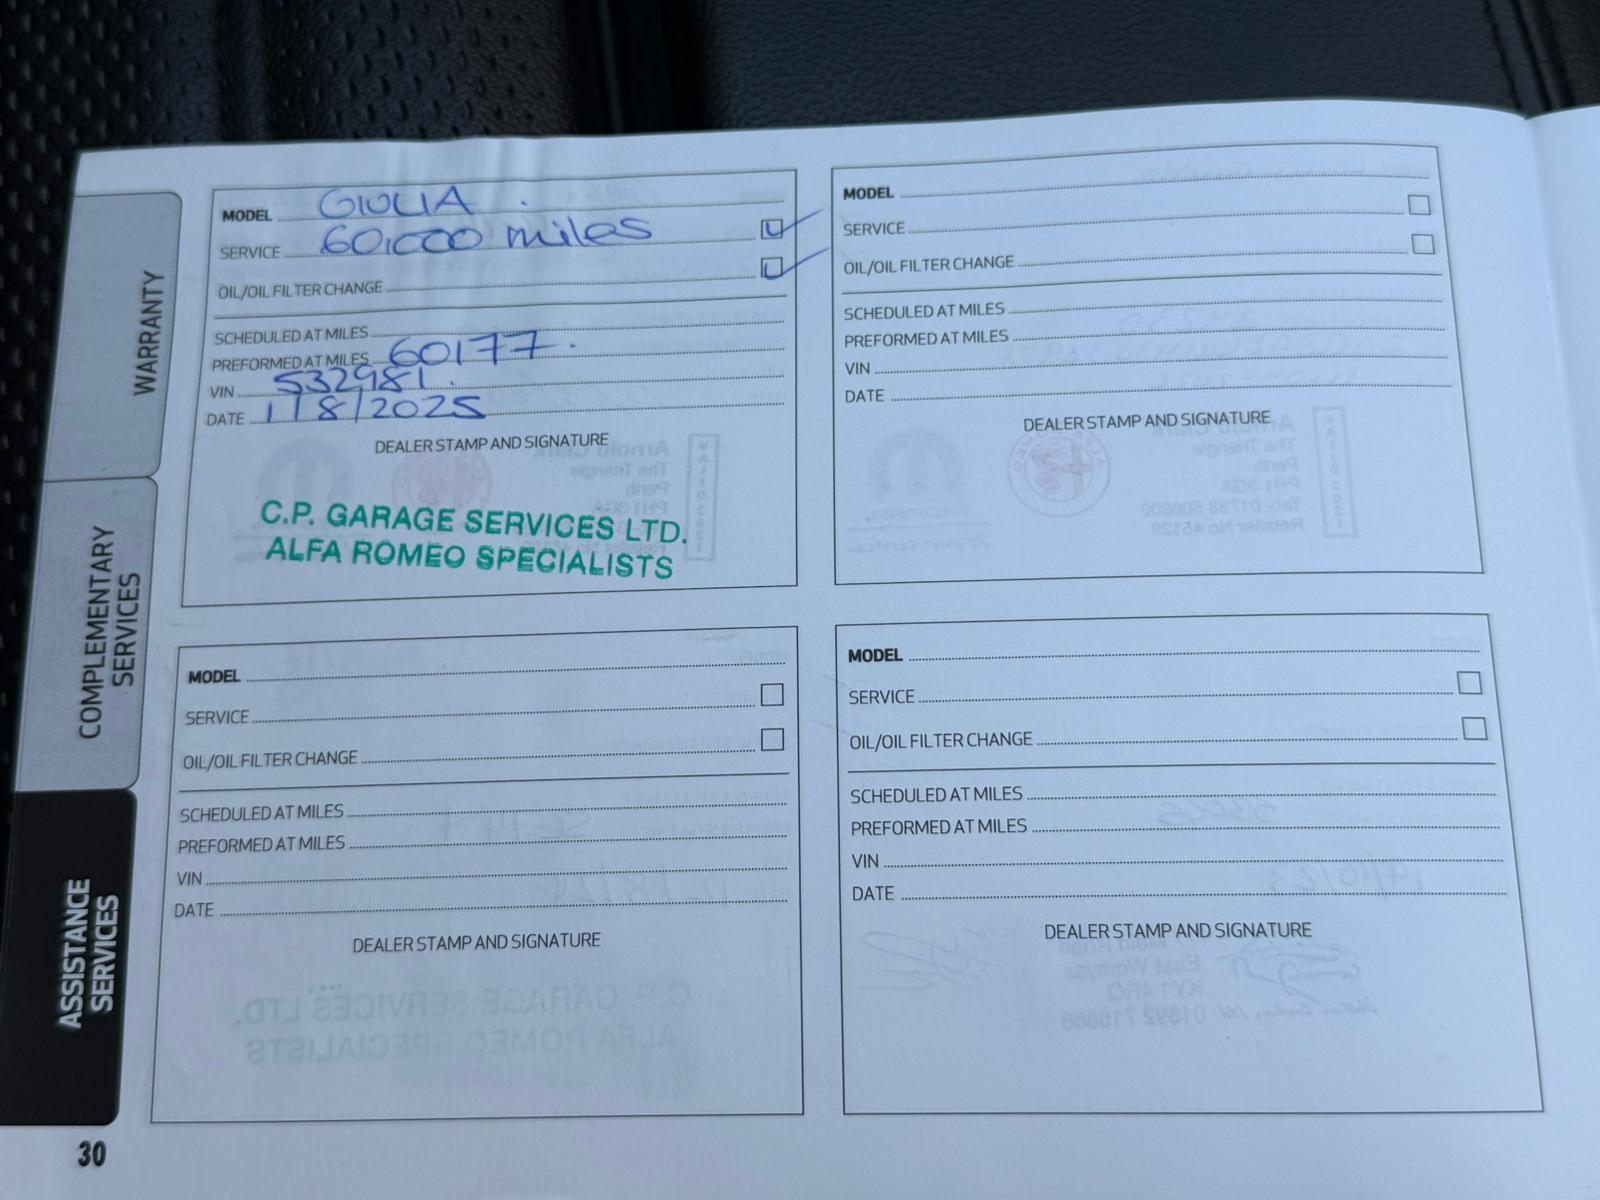 WARRANTY
COMPLEMENTARY
SERVICES
ASSISTANCE
SERVICES
MODEL GIULIA
SERVICE 60,000 miles
OIL/OIL FILTER CHANGE
SCHEDULED AT MILES
PREFORMED AT MILES 60177
VIN 532981
DATE 1/8/2025
DEALER STAMP AND SIGNATURE
C.P. GARAGE SERVICES LTD.
ALFA ROMEO SPECIALISTS
MODEL
SERVICE
OIL/OIL FILTER CHANGE
SCHEDULED AT MILES
PREFORMED AT MILES
VIN
DATE
DEALER STAMP AND SIGNATURE
MODEL
SERVICE
OIL/OIL FILTER CHANGE
SCHEDULED AT MILES
PREFORMED AT MILES
VIN
DATE
DEALER STAMP AND SIGNATURE
MODEL
SERVICE
OIL/OIL FILTER CHANGE
SCHEDULED AT MILES
PREFORMED AT MILES
VIN
DATE
DEALER STAMP AND SIGNATURE
30